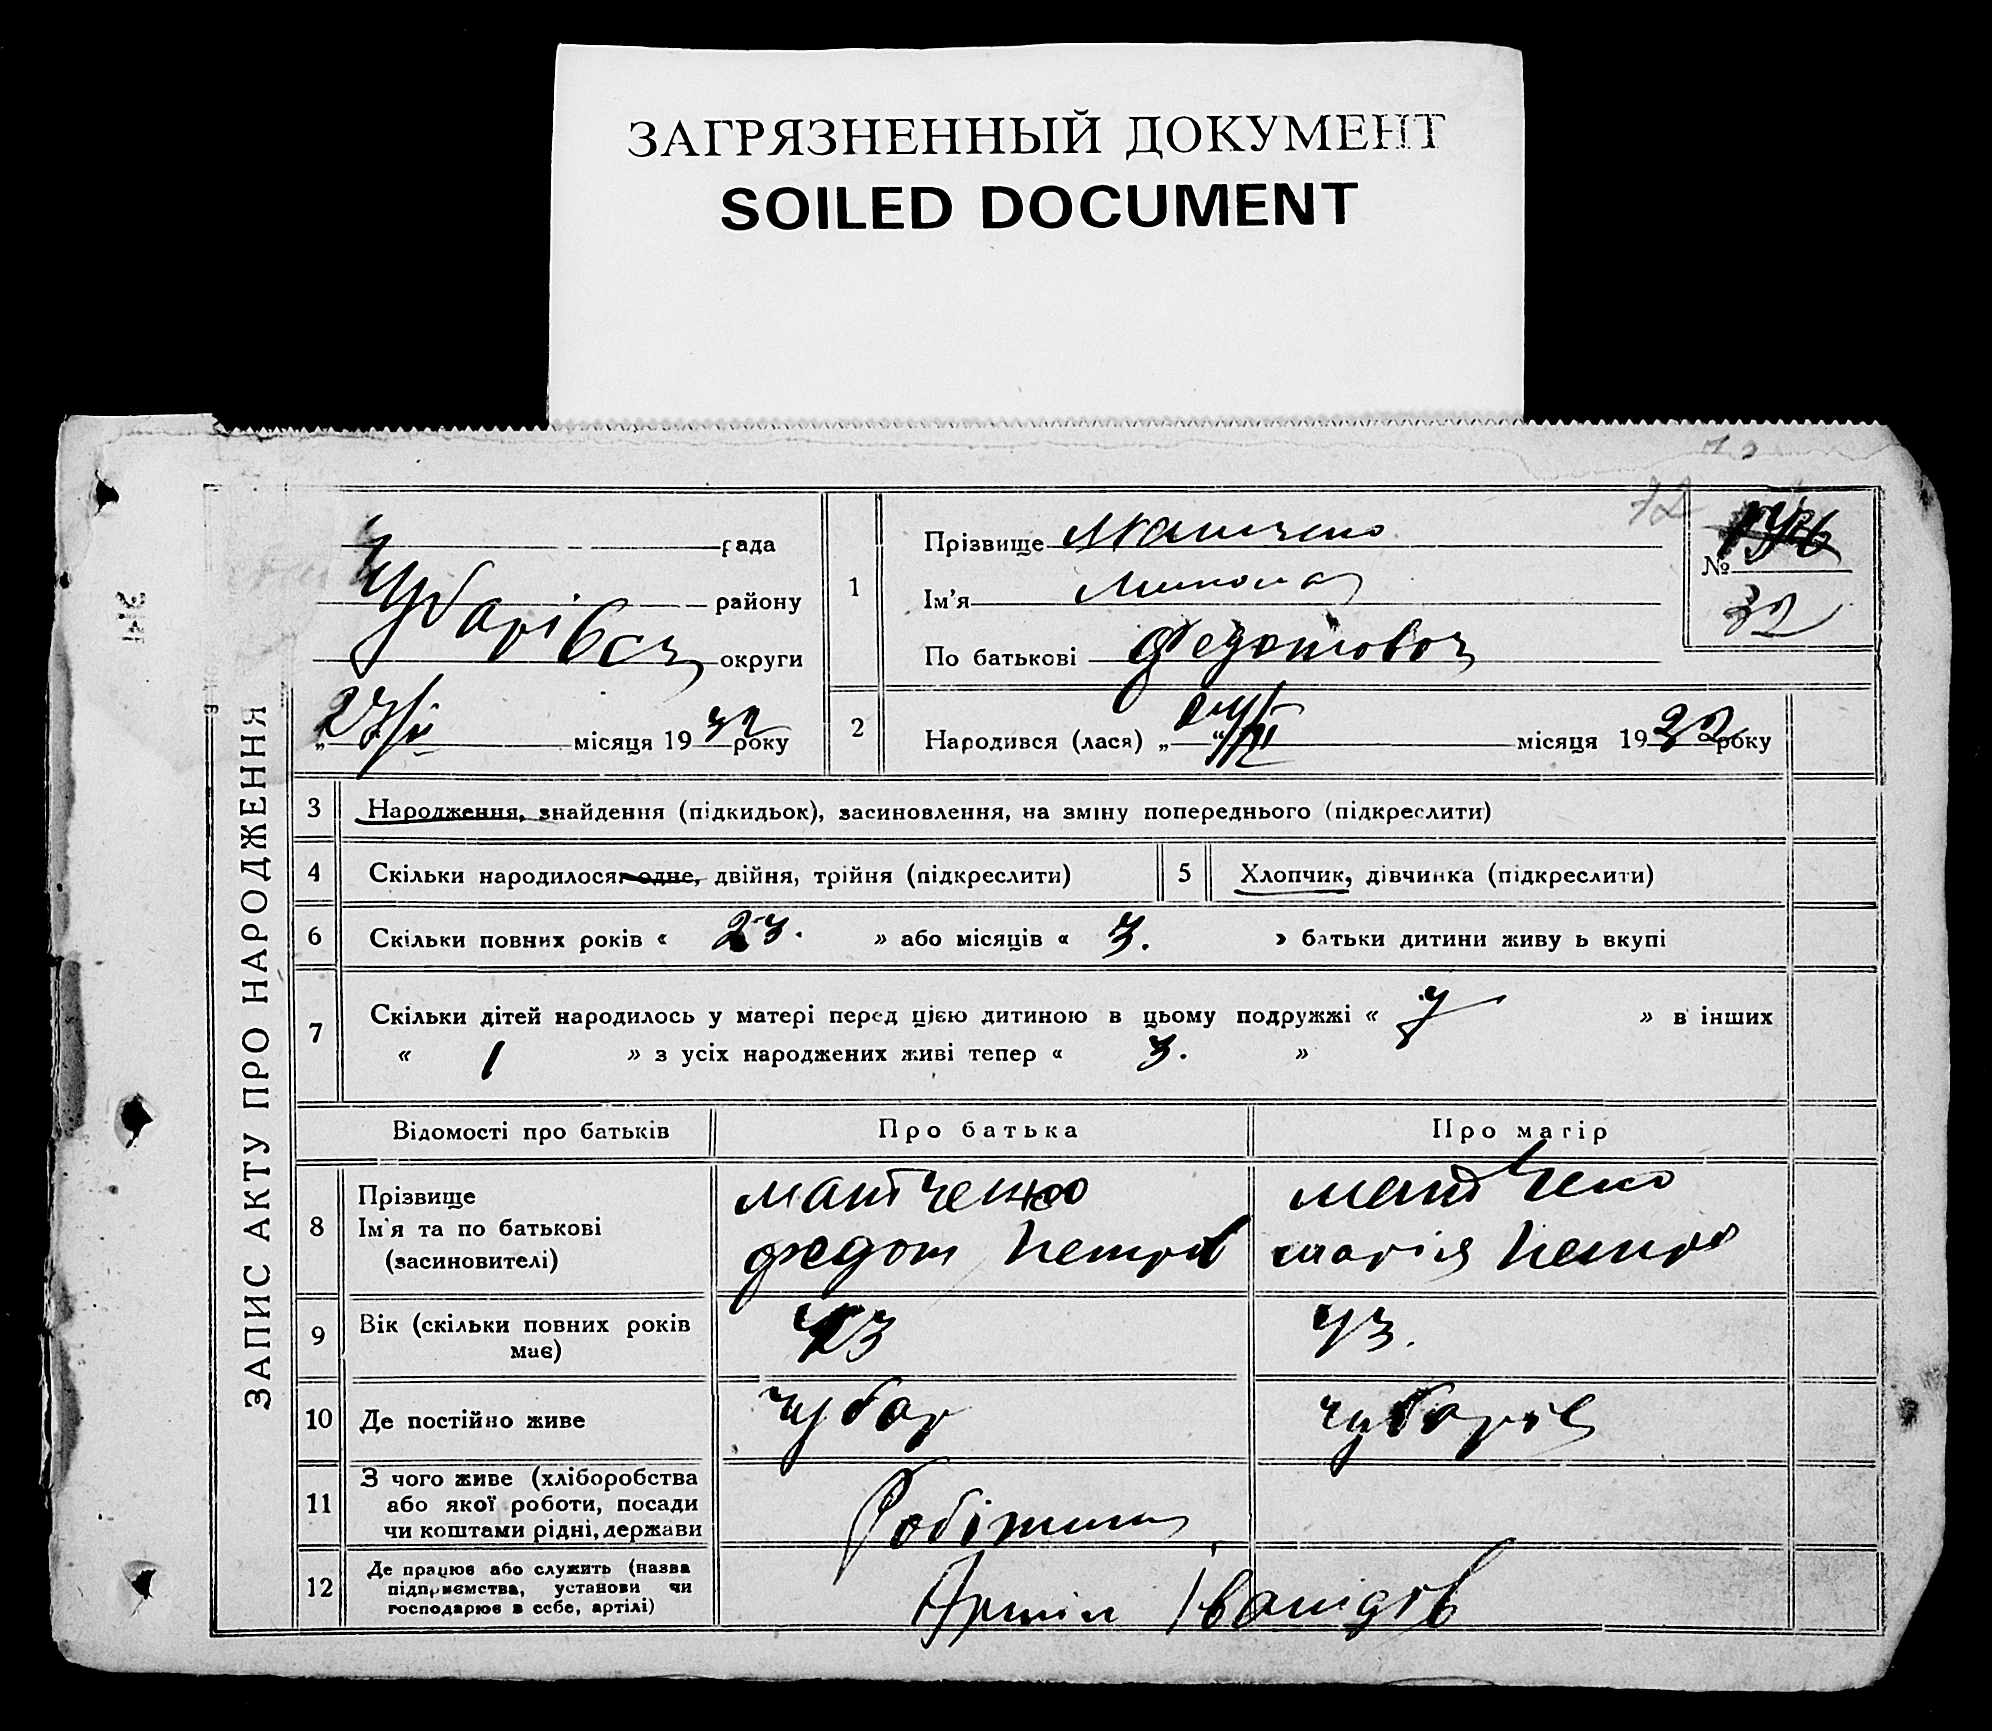 ЗАГРЯЗНЕННЫЙ ДОКУМЕНТ
SOILED DOCUMENT
72
№
32
ЗАПИС АКТУ ПРО НАРОДЖЕННЯ
рада
району
Чубарівсь
округи
місяця 1932 року
1
Прізвище Матченко
Ім'я Микола
По батькові Федотович
2
Народився (лася) „ “ місяця 1932 року
3 Народження, знайдення (підкидьок), засиновлення, на зміну попереднього (підкреслити)
4 Скільки народилося: одне, двійня, трійня (підкреслити)
5 Хлопчик, дівчинка (підкреслити)
6 Скільки повних років « 23. » або місяців « 3. » батьки дитини живуть вкупі
7 Скільки дітей народилось у матері перед цією дитиною в цьому подружжі « 7 » в інших
« 1 » з усіх народжених живі тепер « 3. »
Відомості про батьків Про батька Про матір
8 Прізвище
Ім'я та по батькові
(засиновителі)
Матченко
Федот Петров
Матченко
Марія Петро
9 Вік (скільки повних років
має)
43
43.
10 Де постійно живе
Чубар
Чубарів
11 З чого живе (хліборобства
або якої роботи, посади
чи коштами рідні, держави
Робітник
12 Де працює або служить (назва
підприємства, установи чи
господарює в себе, артілі)
Артіл